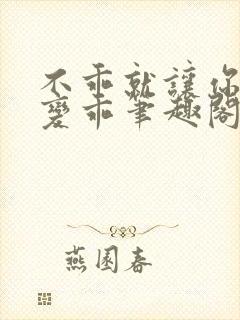 不乖就讓你
變乖筆趣閣
燕園春